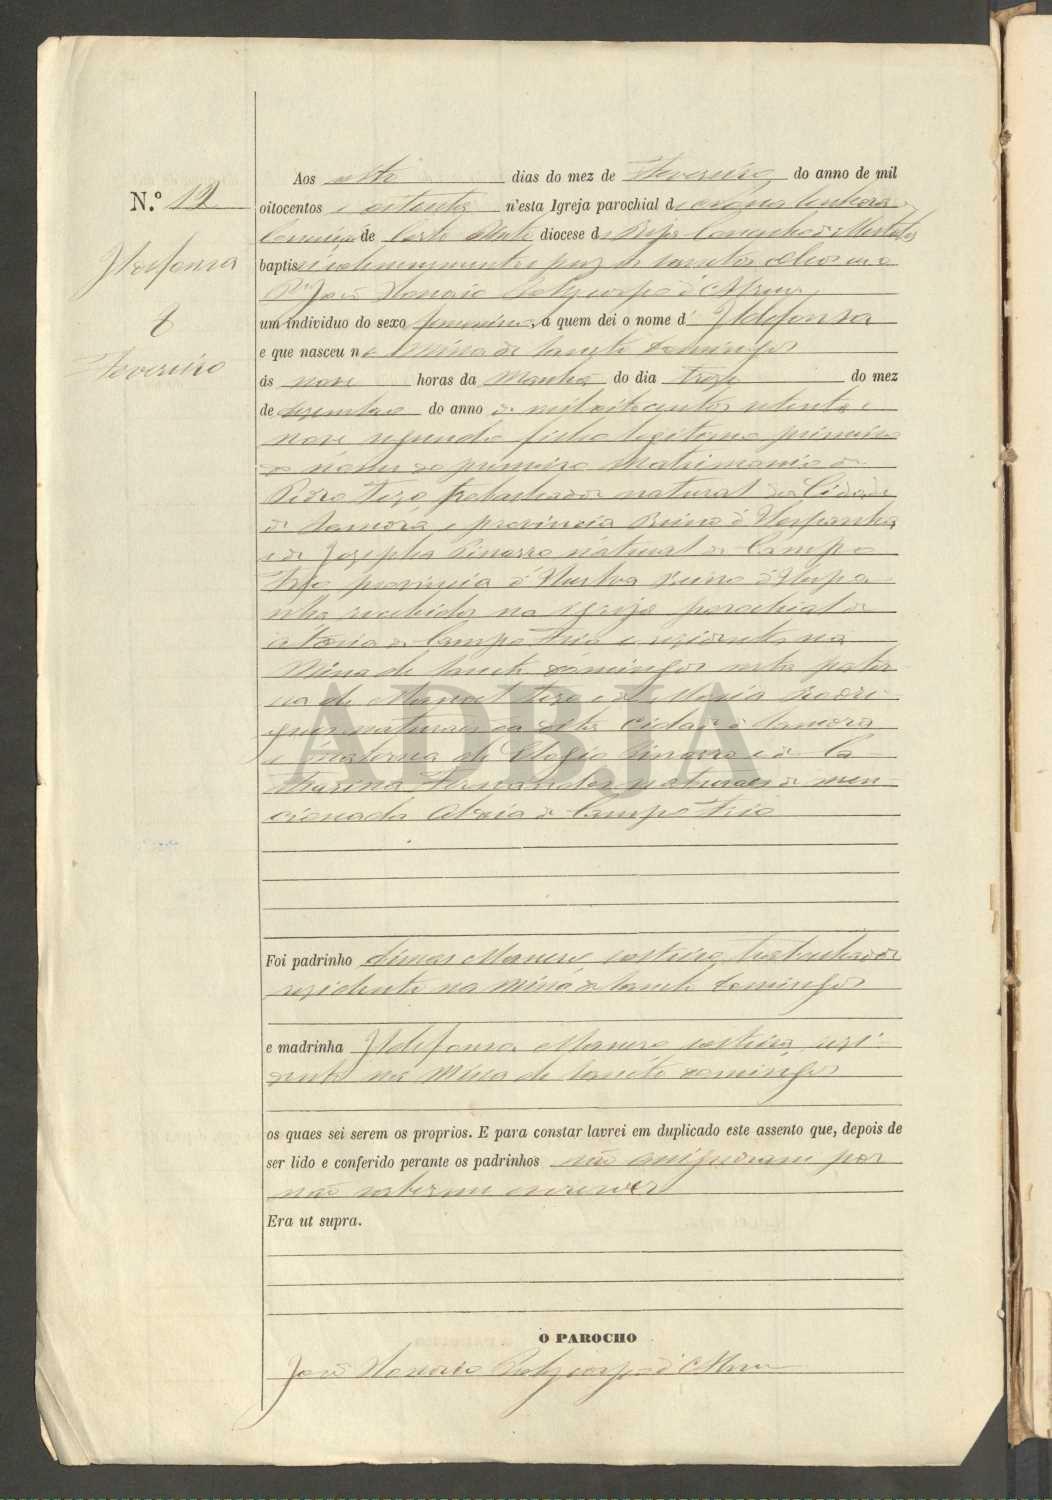 N.º 12
Ildefonsa
8
Fevereiro
Aos oito dias do mez de Fevereiro do anno de mil
oitocentos e oitenta n'esta Igreja parochial de Senhora
de Corte do Pinto diocese de Beja Concelho de Mertola
baptisei solemnemente e puz os santos oleos eu o
P.e José Honorio Polycarpo d'
um individuo do sexo femenino, a quem dei o nome d' Ildefonsa
e que nasceu na Mina de Sancto Domingos
ás nove horas da Manhã do dia treze do mez
de dezembro do anno de mil oitocentos setenta e
nove segundo filho legitimo primeiro
do nome do primeiro Matrimonio de
Pedro Tezo trabalhador natural da Cidade
de Samora, e provincia Reino d'Hespanha,
e de Josepha natural de Campo
Frio provincia d'Huelva Reino d'Hespa
nha recebidos na Igreja parochial de
Aldeia de Campo Frio e residentes na
Mina de Sancto Domingos neta pater
na de Manoel Tezo e de Maria Rodri
gues naturaes da dita cidade de Samora
e materna de Elogio e de Ca
tharina Fernandes naturaes de men
cionada Aldeia de Campo Frio
Foi padrinho Dimas trabalhador
residente na Mina de Sancto Domingos
e madrinha Ildefonsa resi
dente na Mina de Sancto Domingos
os quaes sei serem os proprios. E para constar lavrei em duplicado este assento que, depois de
ser lido e conferido perante os padrinhos não assignaram por
não saberem escrever
Era ut supra.
O PAROCHO
José Honorio Polycarpo d'
ADBJA